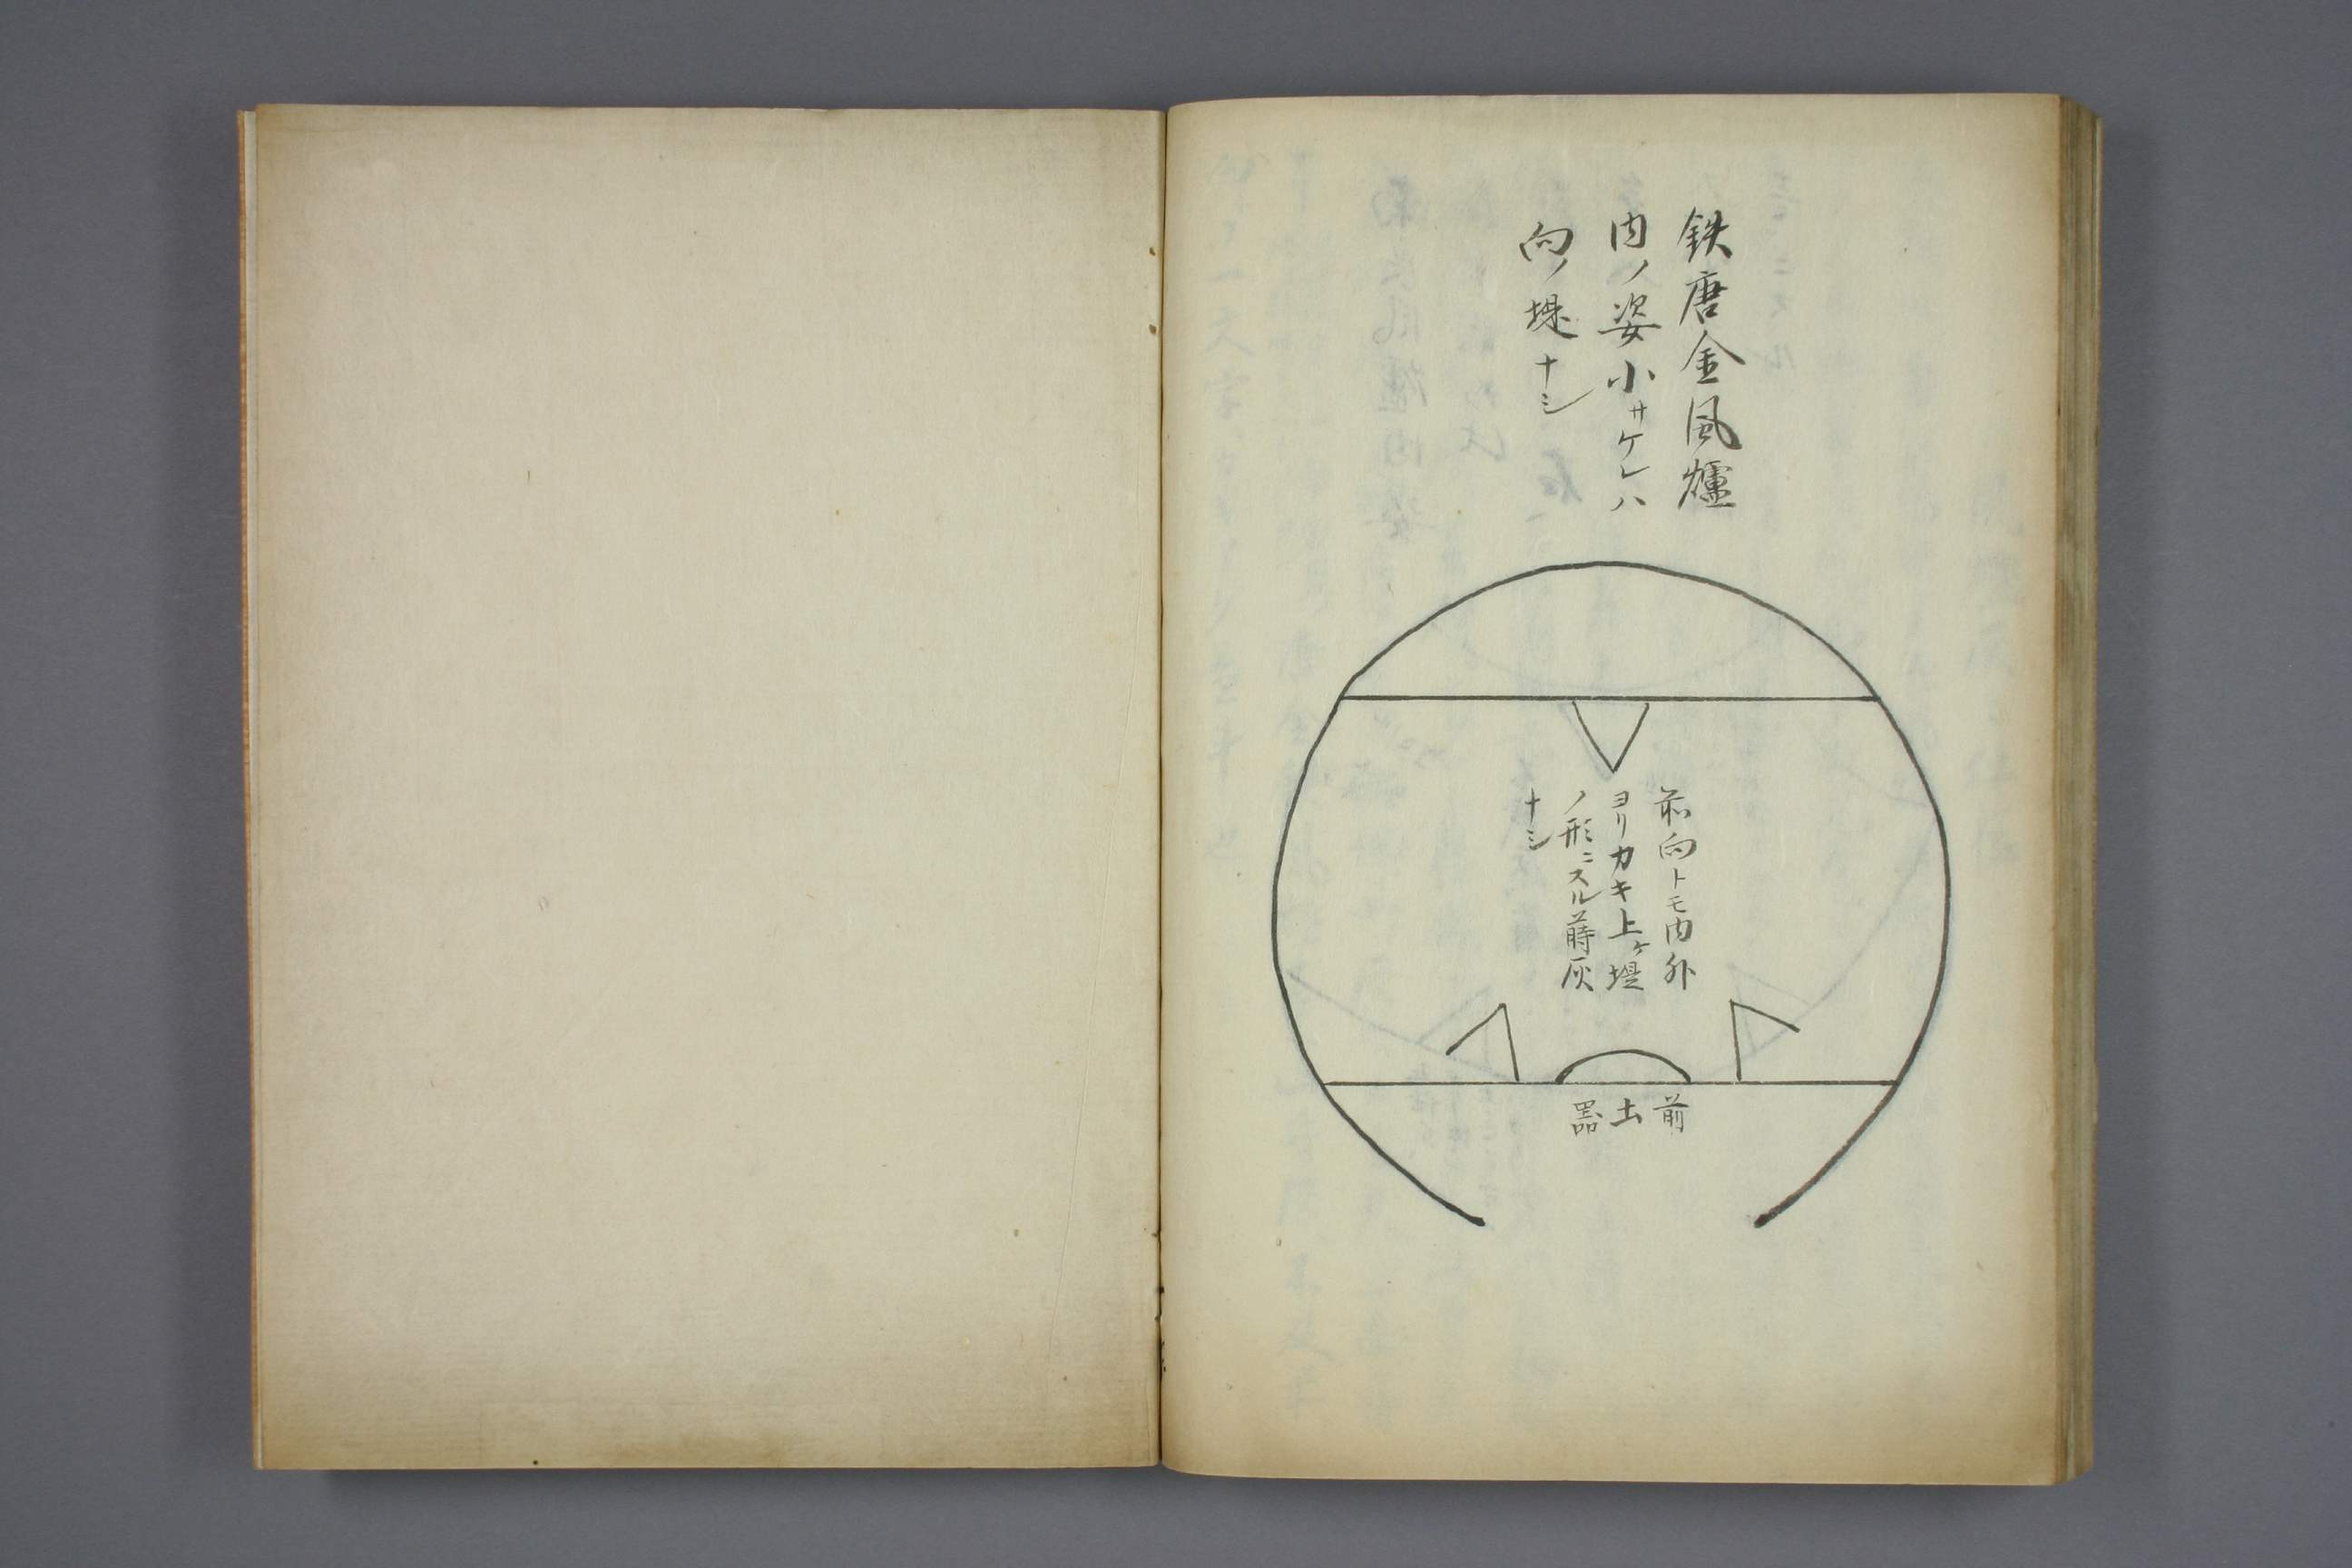 鉄唐金風爐
内ノ姿小サケレハ
向ノ堤ナシ
前向トモ内外
ヨリカキ上ケ堤
ノ形ニスル蒔灰
ナシ
前
土
器